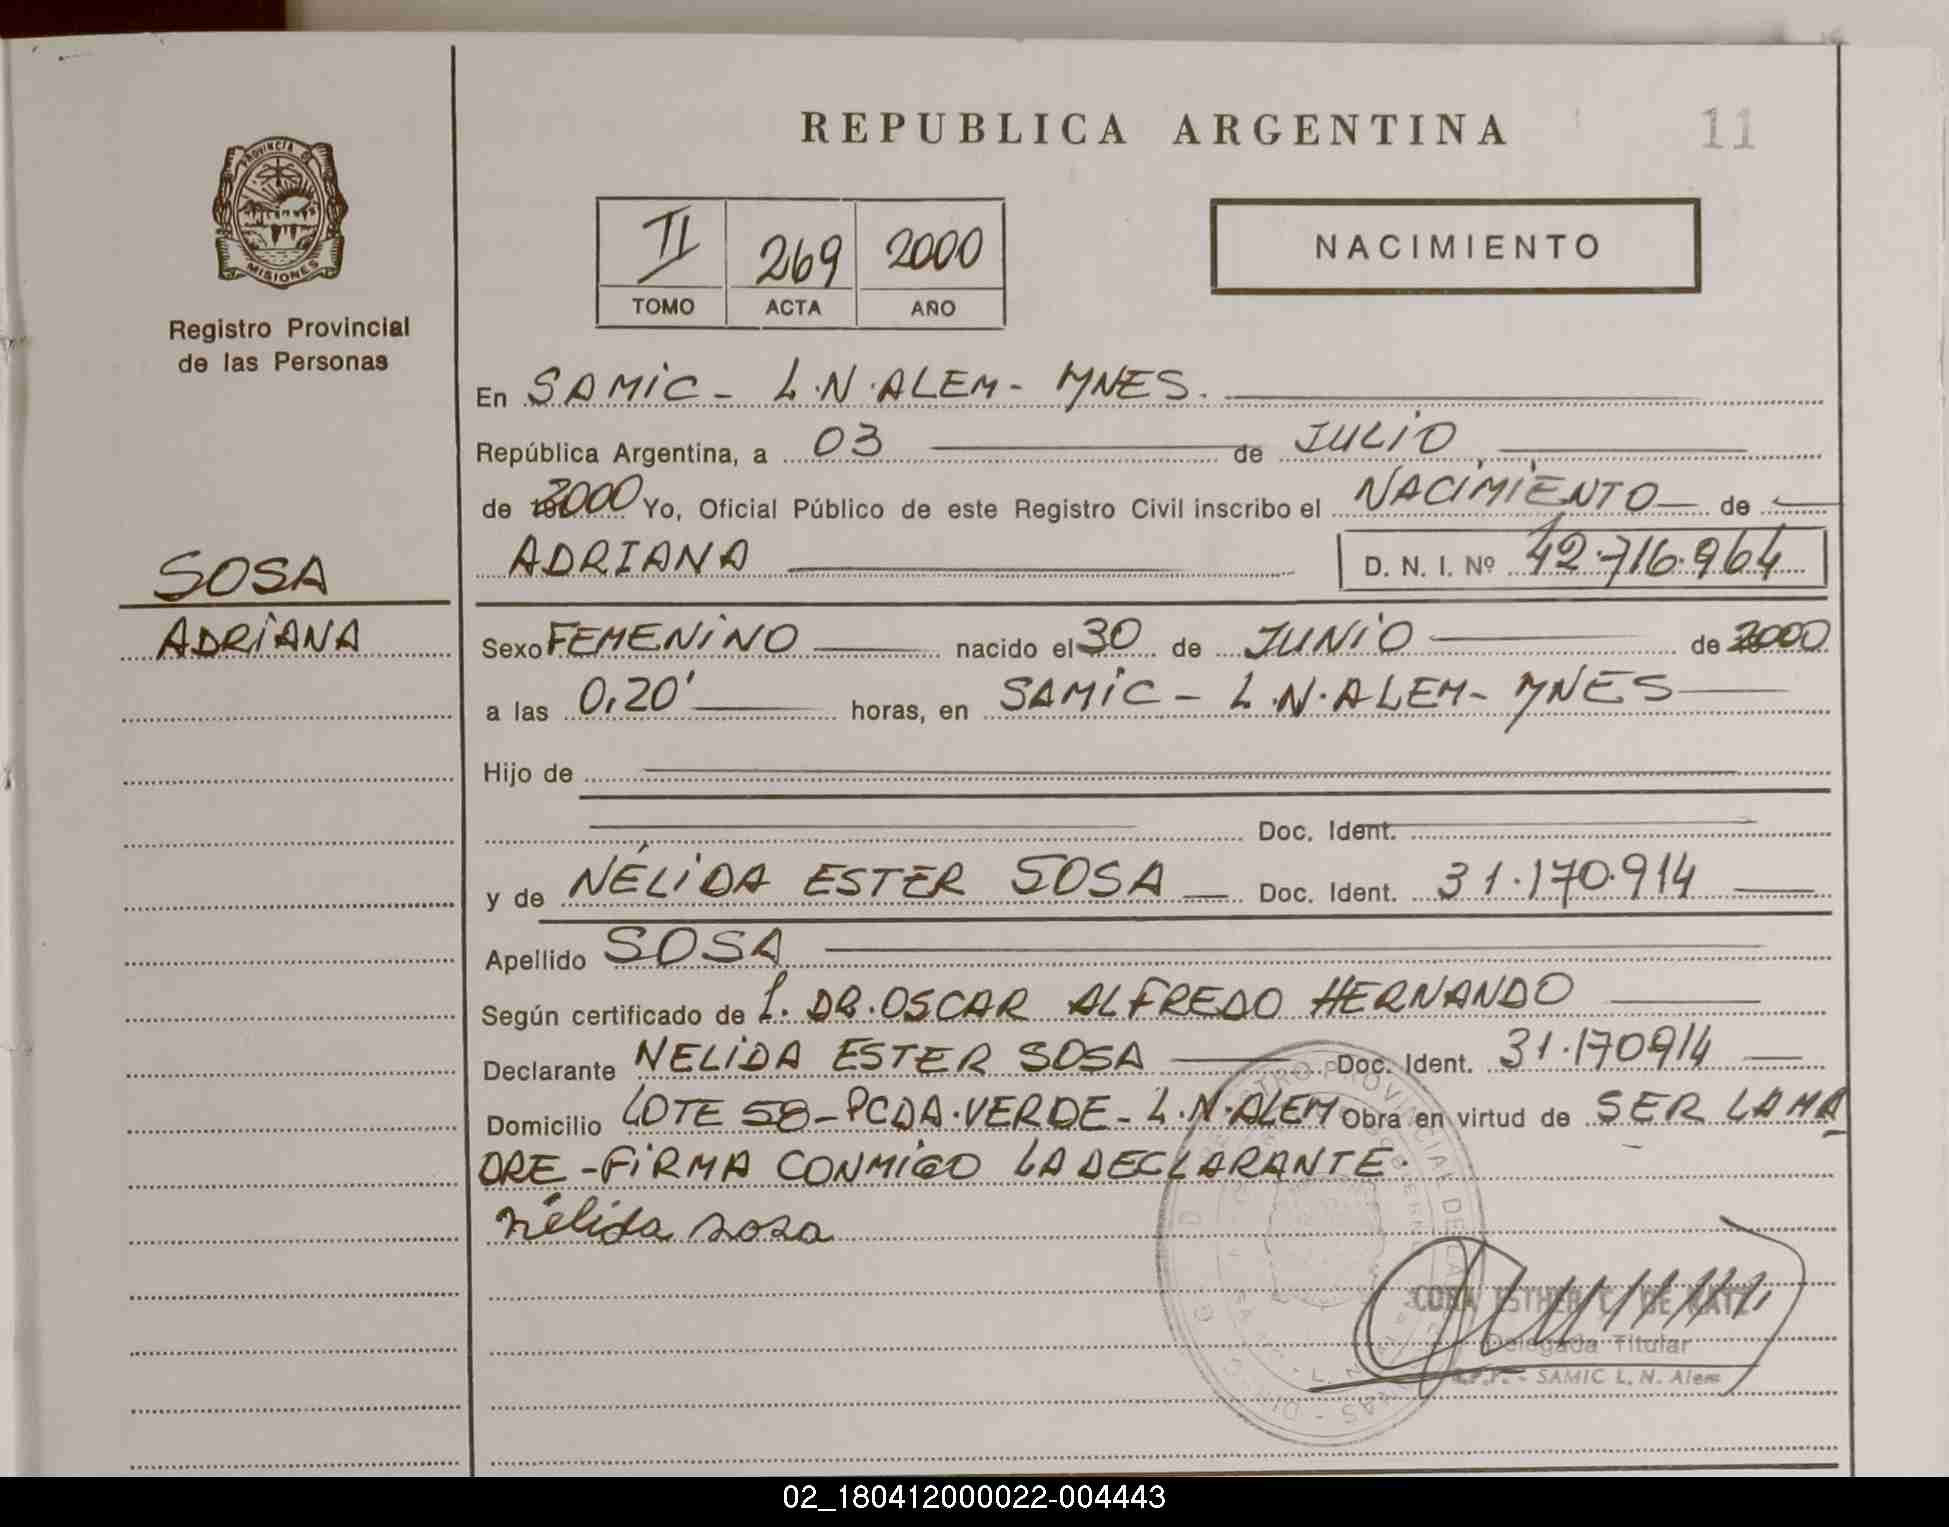 REPUBLICA ARGENTINA
11
PROVINCIA DE
MISIONES
Registro Provincial
de las Personas
II 269 2000
TOMO ACTA AÑO
NACIMIENTO
En SAMIC - L.N. ALEM - MNES.
República Argentina, a 03 de JULIO
de 2000 Yo, Oficial Público de este Registro Civil inscribo el NACIMIENTO de
ADRIANA D. N. I. Nº 42.716.964
SOSA
ADRIANA
Sexo FEMENINO nacido el 30 de JUNIO de 2000
a las 0,20' horas, en SAMIC - L.N. ALEM - MNES
Hijo de
Doc. Ident.
y de NÉLIDA ESTER SOSA Doc. Ident. 31.170.914
Apellido SOSA
Según certificado de DR. OSCAR ALFREDO HERNANDO
Declarante NELIDA ESTER SOSA Doc. Ident. 31.170914
Domicilio LOTE 58 - PCDA. VERDE - L.N. ALEM Obra en virtud de SER LA MA
DRE - FIRMA CONMIGO LA DECLARANTE.
nélida sosa
ESTHER DE
Delegada Titular
SAMIC L. N. Alem
02_180412000022-004443